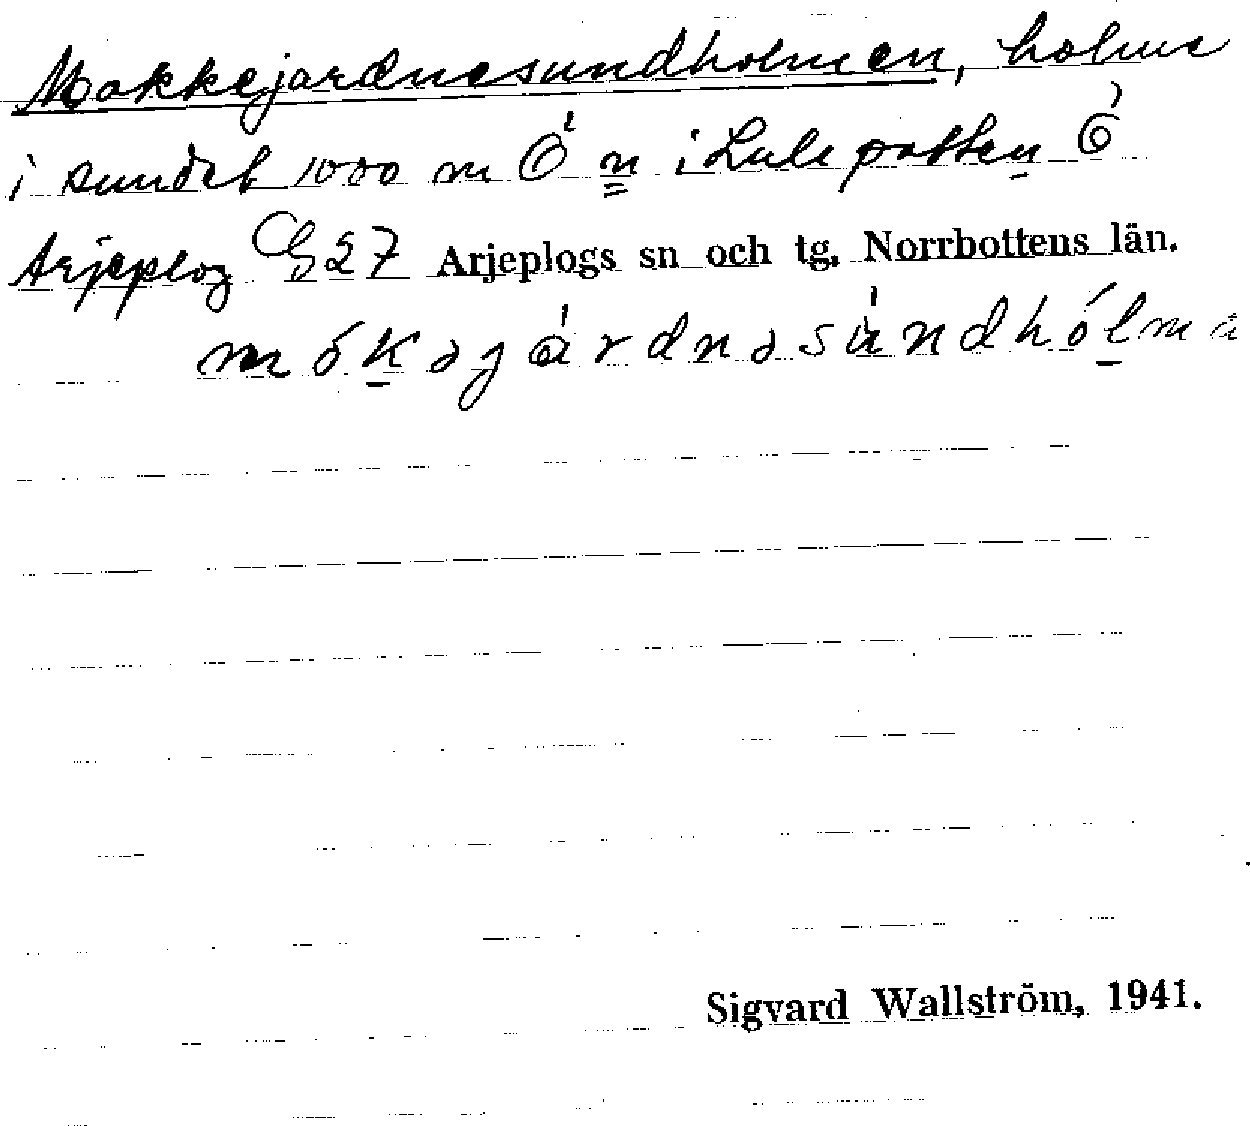 Mokkejardnesundholmen, holme
i sundet 1000 m Ö n i Lulepotten Ö
Arjeplog G 27 Arjeplogs sn och tg. Norrbottens län.
mókəjárdnəsúndhólm
Sigvard Wallström, 1941.